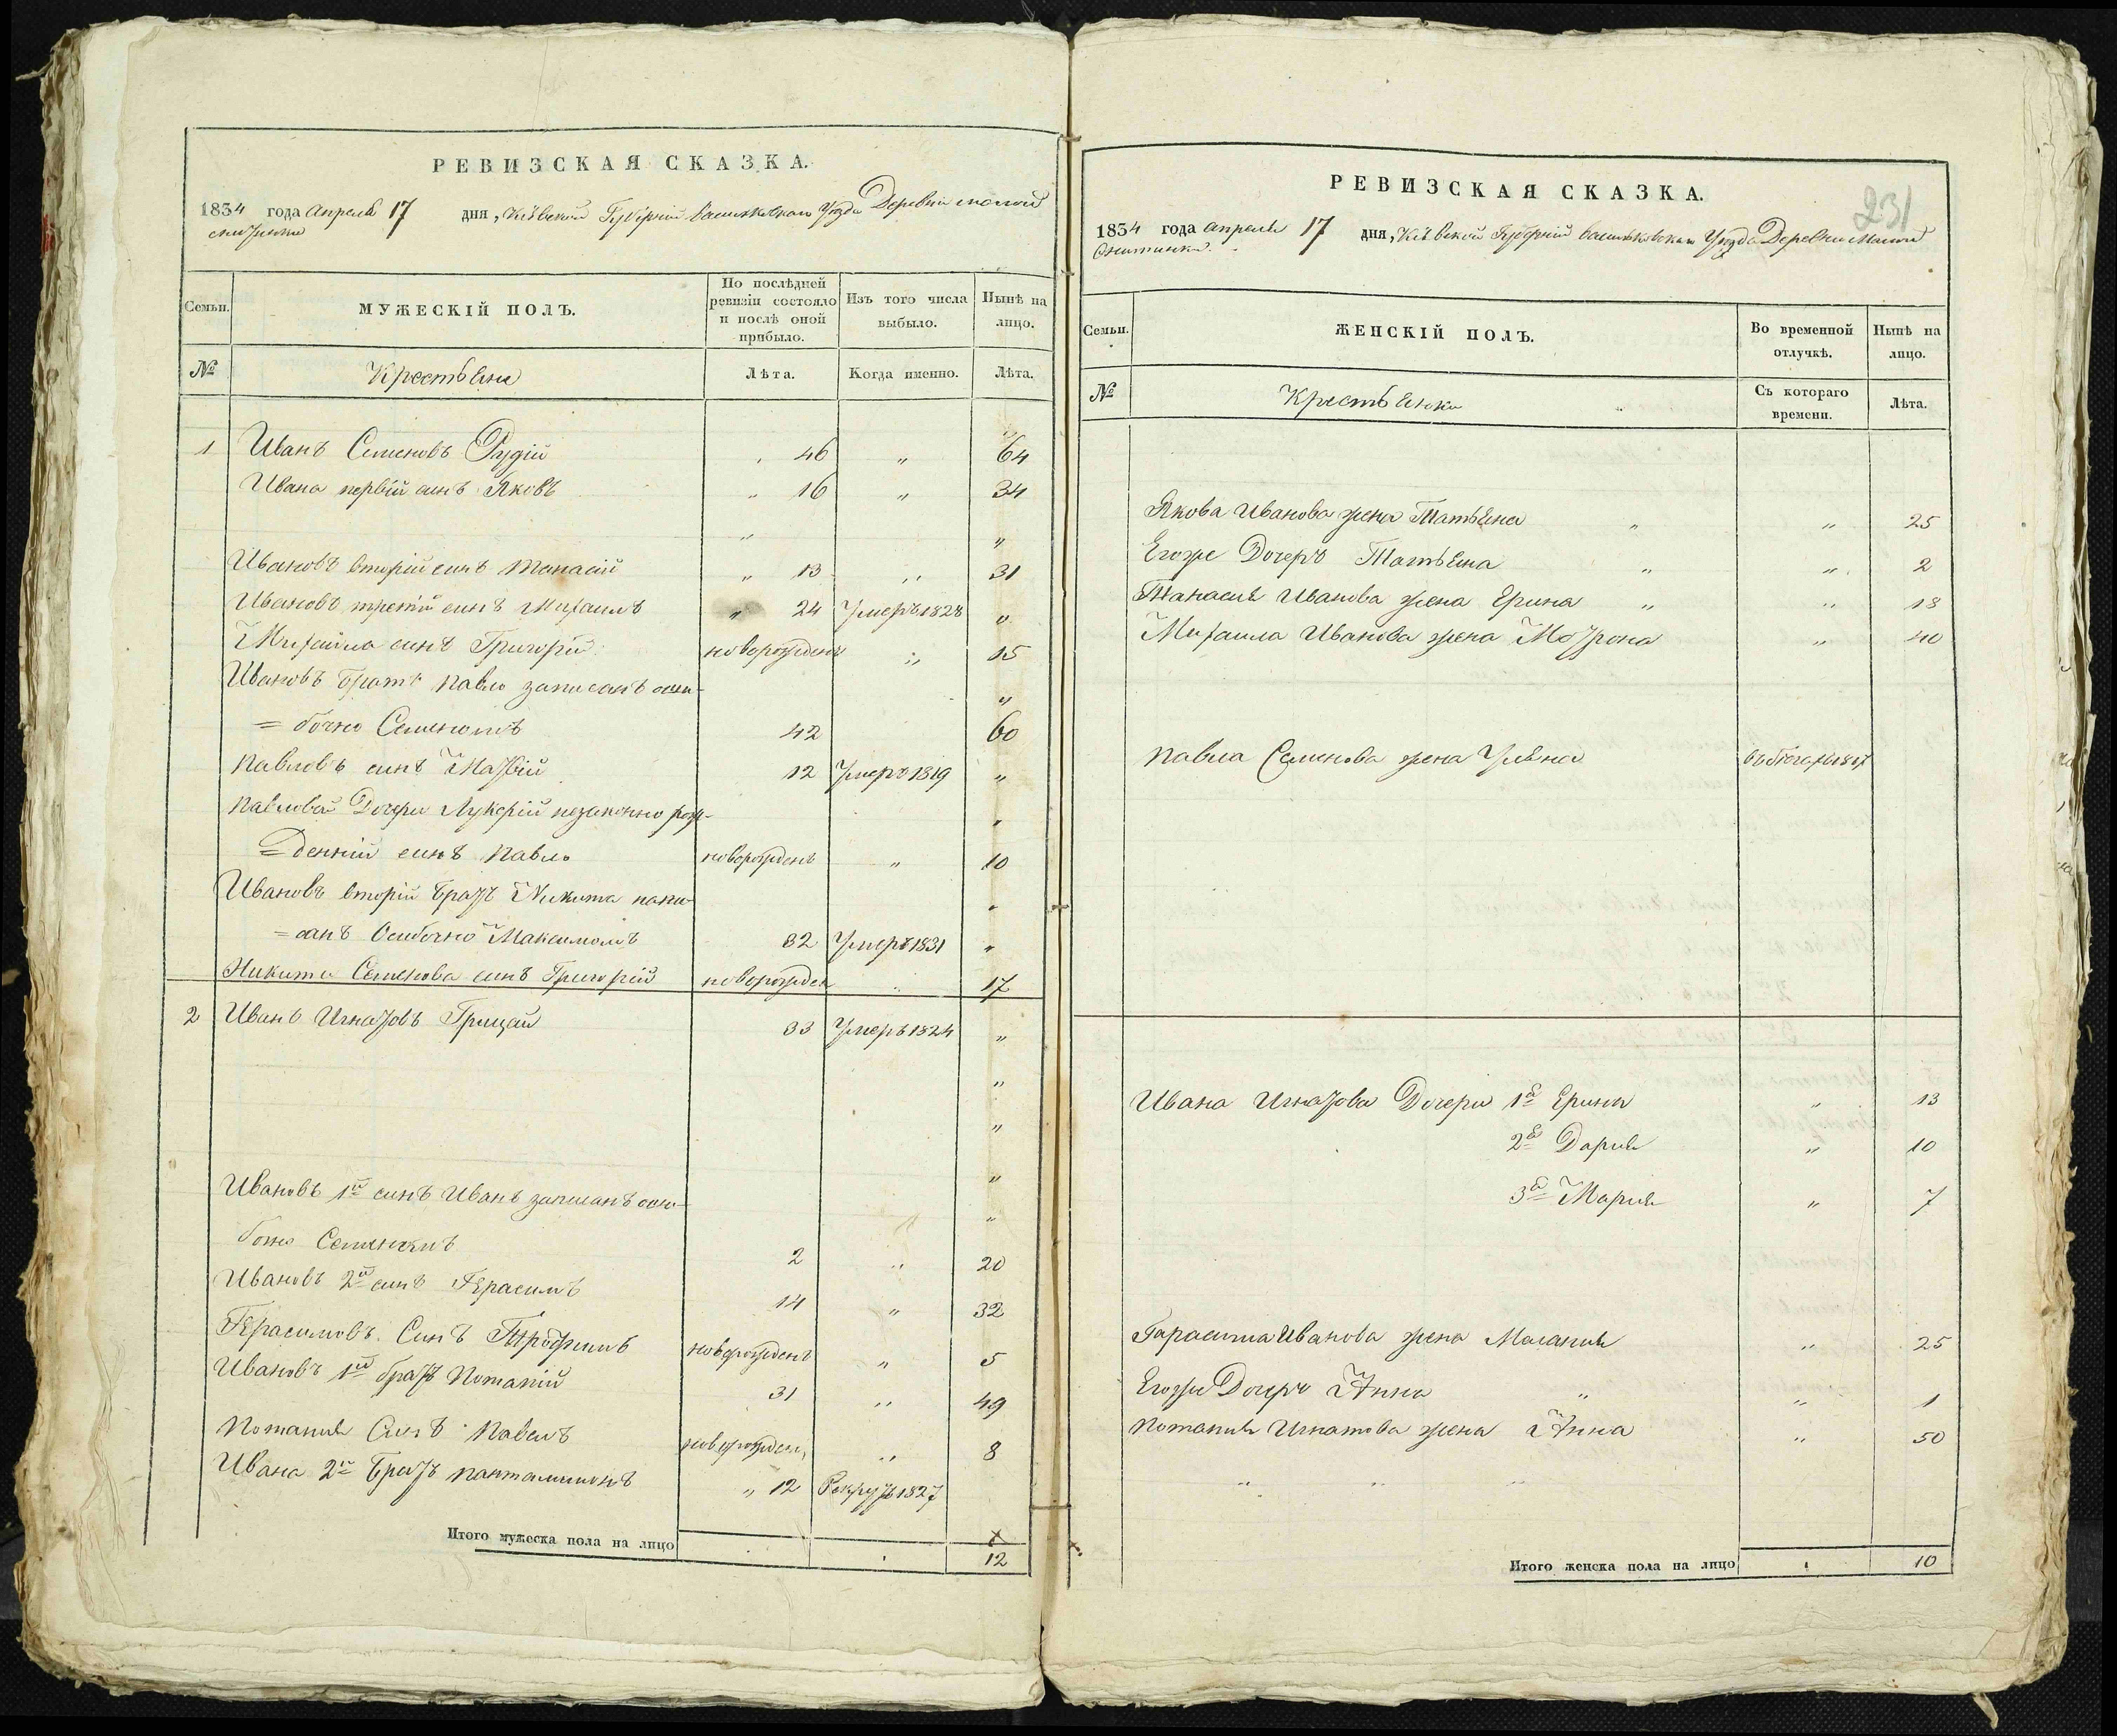 РЕВИЗСКАЯ СКАЗКА.
1834 года Апреля 17 дня, Кіевской Губерніи Васильковскаго Уезда Деревни Малой
Снитинки
Семьи.
МУЖЕСКІЙ ПОЛЪ.
По послѣдней ревизіи состояло и послѣ оной прибыло.
Изъ того числа выбыло.
Нынѣ на лицо.
№
Крестьяне
Лѣта.
Когда именно.
Лѣта.
1 Иванъ Семеновъ Рудій 46 " 64
Ивана первій синъ Яковъ " 16 " 34
" "
Ивановъ вторій синъ Танасій " 13 " 31
Ивановъ третій синъ Михаилъ " 24 Умеръ 1828 "
Михаила синъ Григорій новорожденъ " 15
Ивановъ братъ Павло записанъ оши- "
= бочно Семеномъ 42 60
Павловъ синъ Матвій 12 Умеръ 1819 "
Павловай Дочери Лукерій незаконно рож- "
= денній синъ Павло новорожденъ " 10
Ивановъ вторій братъ Никита напи- "
= санъ Ошибочно Максимомъ 32 Умеръ 1831 "
Никити Семенова синъ Григорій новорожден " 17
2 Иванъ Игнатовъ Грицай 33 Умеръ 1824 "
"
"
"
Ивановъ 1й синъ Иванъ записанъ оши- "
бочно Семеномъ 2 " 20
Ивановъ 2й синъ Герасимъ 14 " 32
Герасимовъ Синъ Трофимъ новорожденъ " 5
Ивановъ 1й братъ Потапій 31 " 49
Потапия Синъ Павелъ новорожден, " 8
Ивана 2й братъ Панталимонъ " 12 Рекрутъ 1827
Итого мужеска пола на лицо 12
РЕВИЗСКАЯ СКАЗКА.
231
1834 года Апреля 17 дня, Кіевской Губерніи Васильковскаго Уезда Деревни Малой
Снитинки.
Семьи.
ЖЕНСКІЙ ПОЛЪ.
Во временной отлучкѣ.
Нынѣ на лицо.
№
Крестьянки
Съ котораго времени.
Лѣта.
Якова Иванова жена Татьяна " " 25
Егоже Дочеръ Татьяна " " 2
Танасия Иванова жена Ерина " " 18
Михаила Иванова жена Мотрона " 40
Павла Семенова жена Ульяна въ бегахъ 1817
Ивана Игнатова Дочери 1я Ерина " 13
2я Дария " 10
3я Мария " 7
Гарасима Иванова жена Малания " 25
Егоже Дочеръ Анна " " 1
Потапия Игнатова жена Анна " 50
" " "
Итого женска пола на лицо 10